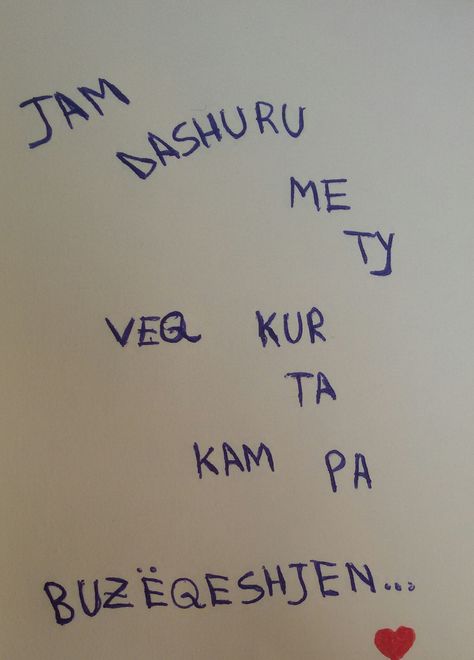 JAM
DASHURU
ME
TY
VEQ KUR
TA
KAM PA
BUZËQESHJEN...